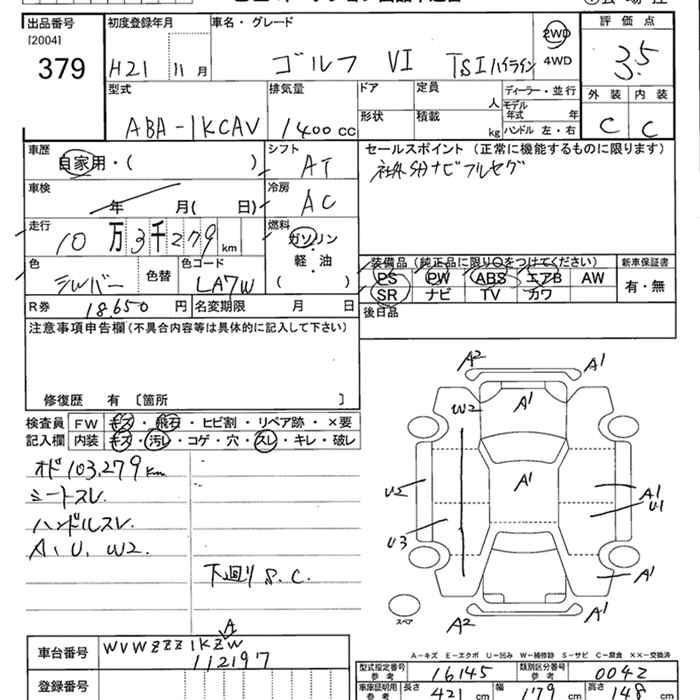 出品番号 初度登録年月 車名・グレード 評価点
[2004]
379 H21 11月 ゴルフ VI TSIハイライン 2WD 4WD 3.5
型式 排気量 ドア 定員 人 ディーラー・並行 外装 内装
ABA-1KCAV 1400cc 形状 積載 kg モデル年式 年 ハンドル 左・右 C C
車歴 シフト セールスポイント (正常に機能するものに限ります)
自家用・( ) AT 社外SDナビフルセグ
車検 冷房
年 月( 日) AC
走行 燃料
10万3千279km ガソリン
軽・油
( )
色 色替 色コード 装備品 (純正品に限り○をつけてください) 新車保証書
シルバー LA7W PS PW ABS エアB AW 有・無
SR ナビ TV カワ
R券 18.650円 名変期限 月 日 後日品
注意事項申告欄(不具合内容等は具体的に記入して下さい)
修復歴 有 〔箇所 〕
検査員 FW キズ・飛石・ヒビ割・リペア跡・×要
記入欄 内装 キズ・汚レ・コゲ・穴・スレ・キレ・破レ
オド103,279km
シートスレ.
ハンドルスレ.
A、U、W2.
下廻りS.C.
A2 A1
W2 A1
U2 A1 A1
U1
U3
A1
A2 A1
スペア
A-キズ E-エクボ U-凹み W-補修跡 S-サビ C-腐食 ××-交換済
車台番号 WVWZZZ1KZW
A
112197
登録番号
型式指定番号 参考 16145 類別区分番号 参考 0042
車庫証明用 参考 長さ 421cm 幅 179cm 高さ 148cm